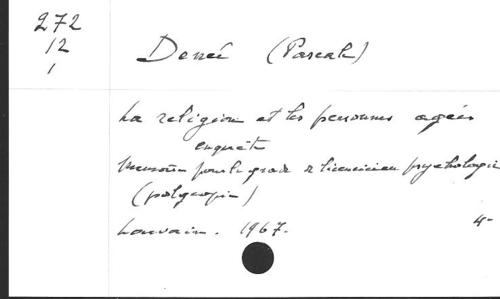 272
12
1
Deneé (Pascale)
La religion et les personnes agées
enquête
Memoire pour le grade de licencié en psychologie
(polycopié)
Louvain. 1967.
4-